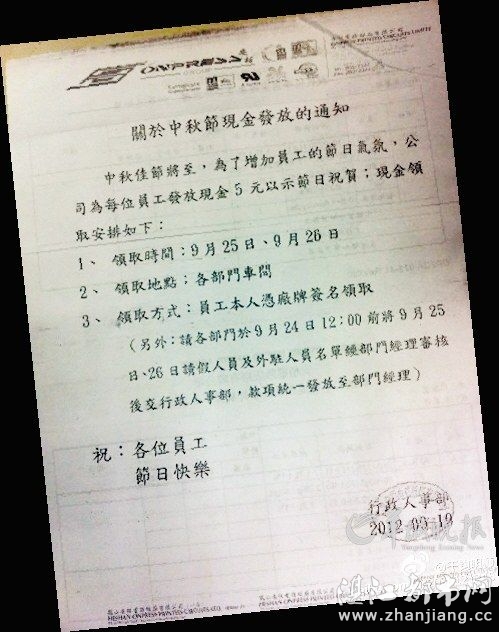 關於中秋節現金發放的通知
中秋佳節將至，為了增加員工的節日氣氛，公
司為每位員工發放現金5元以示節日祝賀；現金領
取安排如下：
1、 領取時間：9月25日、9月26日
2、 領取地點；各部門車間
3、 領取方式：員工本人憑廠牌簽名領取
（另外：請各部門於9月24日12:00前將9月25
日、26日請假人員及外駐人員名單經部門經理審核
後交行政人事部，款項統一發放至部門經理）
祝：各位員工
節日快樂
行政人事部
2012-09-19
羊城晚報
Yangcheng Evening News
湛江新书网
www.zhanjiang.cc
HESHAN ONPRESS PRINTED CIRCUITS LTD.